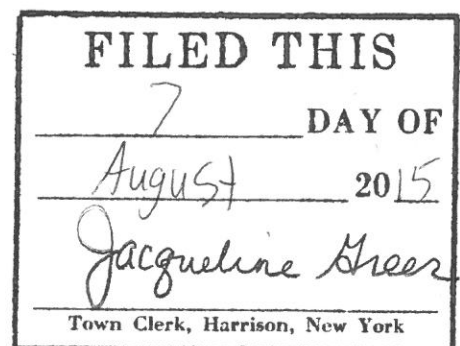 FILED THIS
7 DAY OF
August 2015
Jacqueline Greer
Town Clerk, Harrison, New York